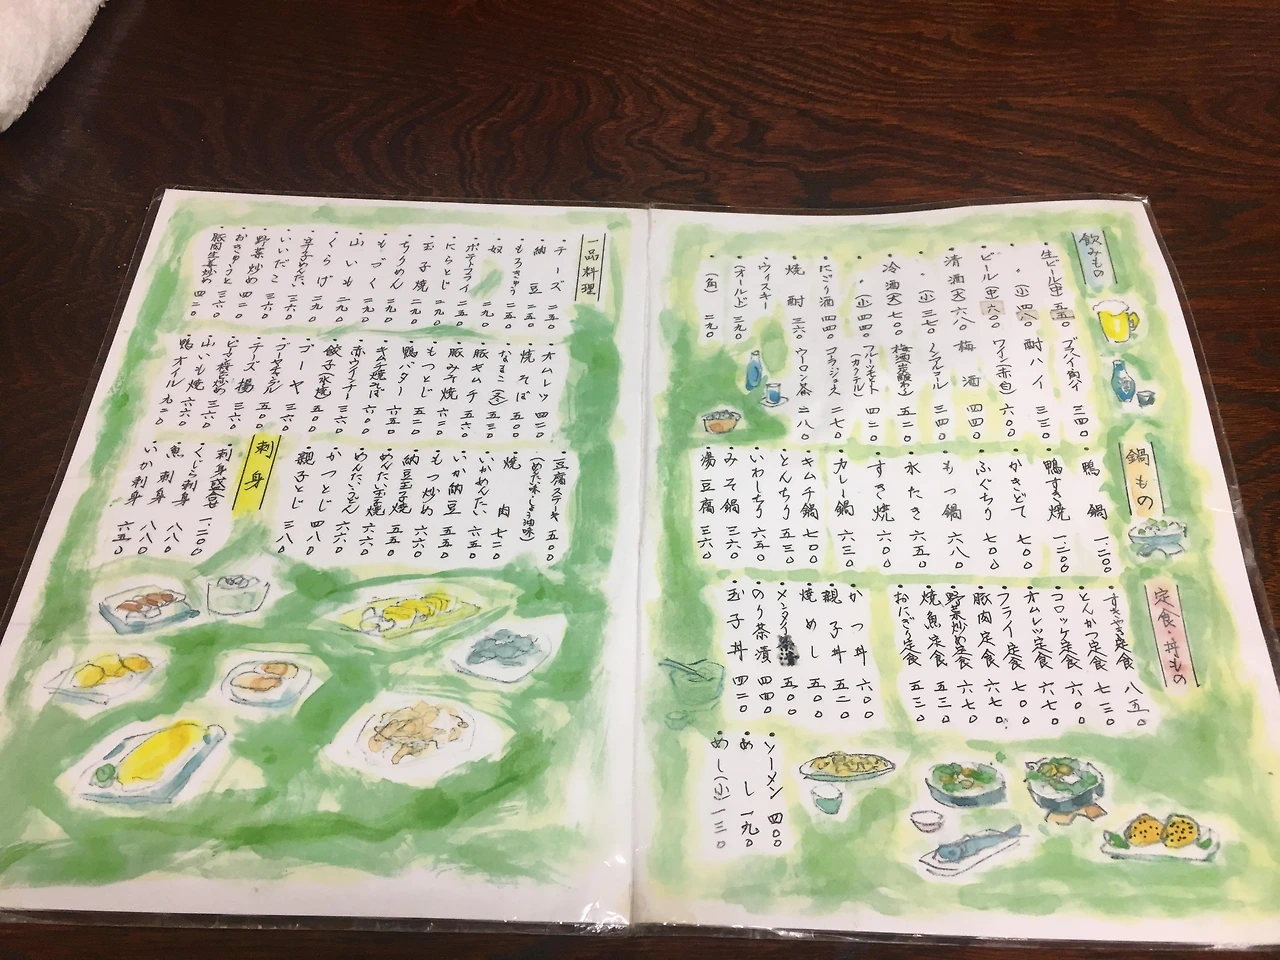 飲みもの
生ビール(中) 五五〇
〃 (小) 四八〇
ビール(中) 六〇〇
清酒(大) 六八〇
〃 (小) 三七〇
冷酒(大) 七〇〇
〃 (小) 四四〇
にごり酒 四四〇
焼酎 三六〇
ウィスキー
(オールド) 三九〇
(角) 二九〇
酎ハイ 三三〇
ワイン(赤・白) 六〇〇
梅酒 四四〇
ノンアルコール 三四〇
梅酒炭酸わり 五二〇
フルーツモット(カクテル) 四二〇
コーラ・ジュース 二七〇
ウーロン茶 二八〇
鍋もの
鴨鍋 一、二〇〇
鴨すき焼 一、二〇〇
かきどて 七〇〇
ふぐちり 七〇〇
もつ鍋 六八〇
水たき 六五〇
すき焼 六〇〇
カレー鍋 六三〇
キムチ鍋 七〇〇
とんちり 五三〇
いわしちり 六五〇
みそ鍋 三六〇
湯豆腐 三六〇
定食・丼もの
すきやき定食 八五〇
とんかつ定食 七三〇
コロッケ定食 六〇〇
オムレツ定食 六七〇
フライ定食 七〇〇
豚肉定食 六七〇
野菜炒め定食 六七〇
焼魚定食 五三〇
おにぎり定食 五三〇
かつ丼 六〇〇
親子丼 五二〇
焼めし 五〇〇
メンタイ茶漬 五〇〇
のり茶漬 四四〇
玉子丼 四二〇
ソーメン 四〇〇
めし 一九〇
めし(小) 一三〇
一品料理
チーズ 二五〇
納豆 二五〇
もろきゅう 二五〇
奴 二五〇
ポテトフライ 二五〇
にらとじ 二九〇
玉子焼 二九〇
ちりめん 二九〇
もづく 二九〇
山いも 二九〇
くらげ 二九〇
辛子めんたい 三六〇
いいだこ 三六〇
野菜炒め 四二〇
おきゅうと 三六〇
豚肉生姜炒め 四二〇
オムレツ 四二〇
焼そば 五〇〇
なまこ(冬) 六〇〇
豚キムチ 五三〇
豚みそ焼 六〇〇
もつとじ 五二〇
鴨バター 六〇〇
キムチ焼そば 六〇〇
赤ウインナー 三六〇
餃子(水・焼) 三六〇
ゴーヤ 三六〇
ゴーヤチャンプル 五〇〇
チーズ揚 三六〇
山いも焼 六六〇
鴨オイル 九二〇
豆腐ステーキ 五〇〇
(めんたい味・しょう油味)
焼肉 七二〇
いかめんたい 六五〇
いか納豆 五五〇
もつ炒め 六六〇
納豆玉子焼 五五〇
めんたい玉子焼 六六〇
めんたいおでん 六六〇
かつとじ 四八〇
親子とじ 三八〇
刺身
刺身盛合せ 一、二〇〇
くじら刺身 八八〇
魚刺身 八八〇
いか刺身 六五〇